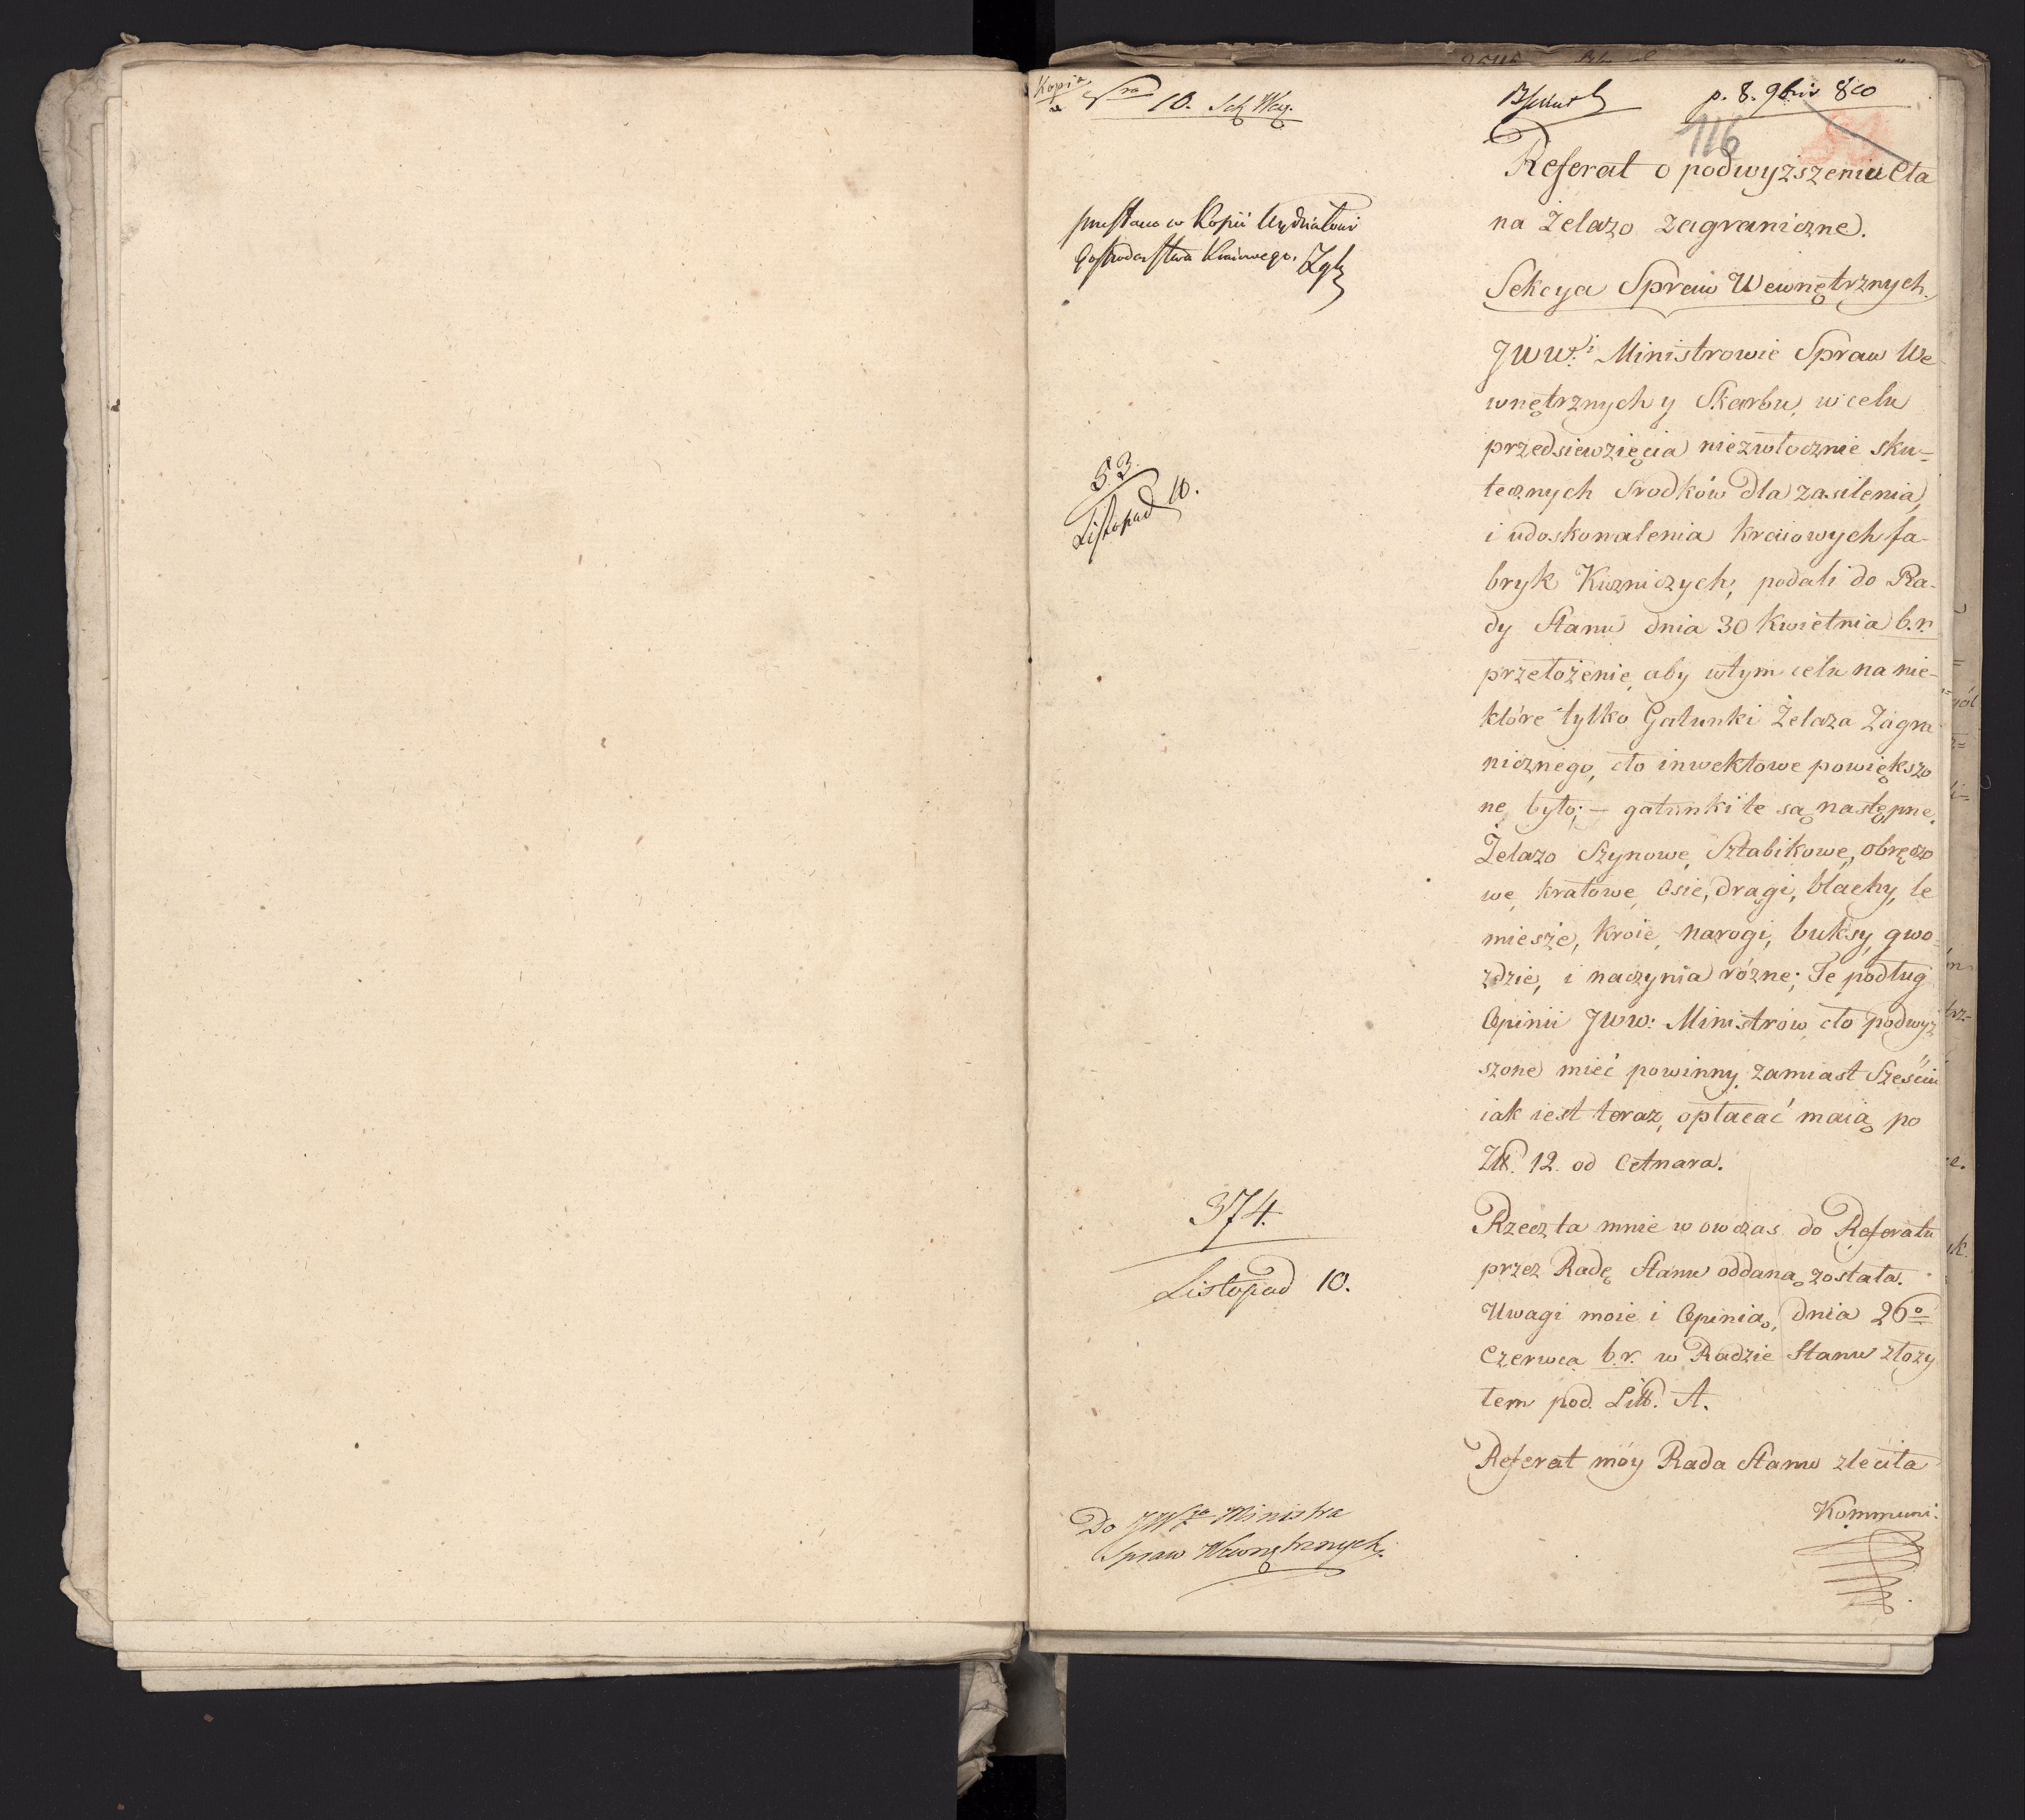 Kopia
Nro 10. Sek Wey.
p. 8. 9bris 810
116
Referat o podwyższeniu Cła
na Żelazo zagraniczne.
Sekcya Spraw Wewnętrznych.
przesłano w Kopii Wydziałowi
Gospodarstwa Kraiowego. Zgb
JWWi. Ministrowie Spraw We
wnętrznych y Skarbu, w celu
przedsiewzięcia niezwłocznie sku=
tecznych Srodków dla zasilenia,
i udoskonalenia kraiowych fa-
bryk Kuzniczych, podali do Ra-
dy Stanu dnia 30 Kwietnia b.r.
przełożenie, aby w tym celu na nie-
które tylko Gatunki Żelaza Zagra
nicznego, cło inwektowe powiększo
ne było; – gatunki te są następne.
Żelazo Szynowe, Sztabikowe, obręczo
we, kratowe, Osie, drągi, blachy, le
miesze, kroie, narogi, buksy, gwo=
zdzie, i naczynia różne; Te podług
Opinii JWW: Ministrów, cło podwyż
szone mieć powinny, zamiast Sześciu
iak iest teraz, opłacać maią po
Złł. 12. od Cetnara.
53.
Listopad 10.
Rzecz ta mnie wowczas do Referatu
przez Radę Stanu oddaną została.
Uwagi moie i Opinią, dnia 26o
Czerwca b.r. w Radzie Stanu złoży
łem pod Litt. A.
Referat móy Rada Stanu zleciła
Kommuni.
374.
Listopad 10.
Do JWgo Ministra
Spraw Wewnętrznych.